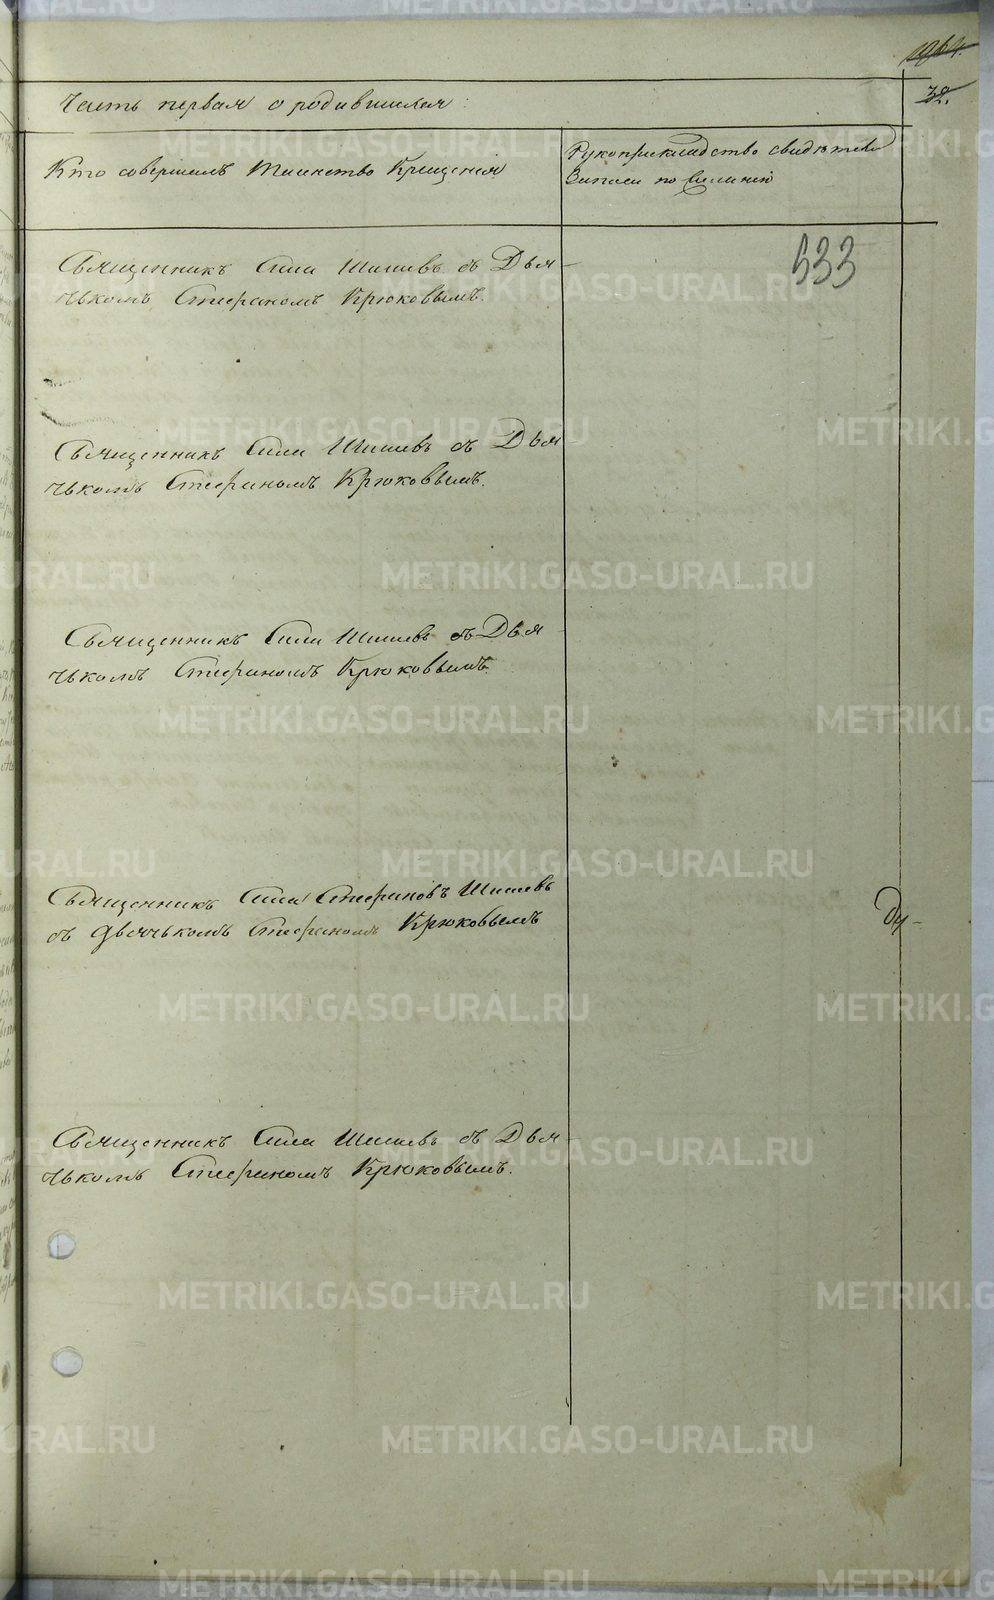 Часть первая о родившихся:
32.
Кто совершалъ Таинство Крещенія
Рукоприкладство свидѣтелей
Записи по желанію
533
Священникъ Сила Шишевъ съ Дья-
чькомъ Стефаномъ Крюковымъ.
Священникъ Сила Шишевъ съ Дья-
чькомъ Стефаномъ Крюковымъ.
Священникъ Сила Шишевъ съ Дья-
чькомъ Стефаномъ Крюковымъ.
Священникъ Сила Стефановъ Шишевъ
съ Дьячькомъ Стефаномъ Крюковымъ
Ду-
Священникъ Сила Шишевъ съ Дья-
чькомъ Стефаномъ Крюковымъ.
METRIKI.GASO-URAL.RU